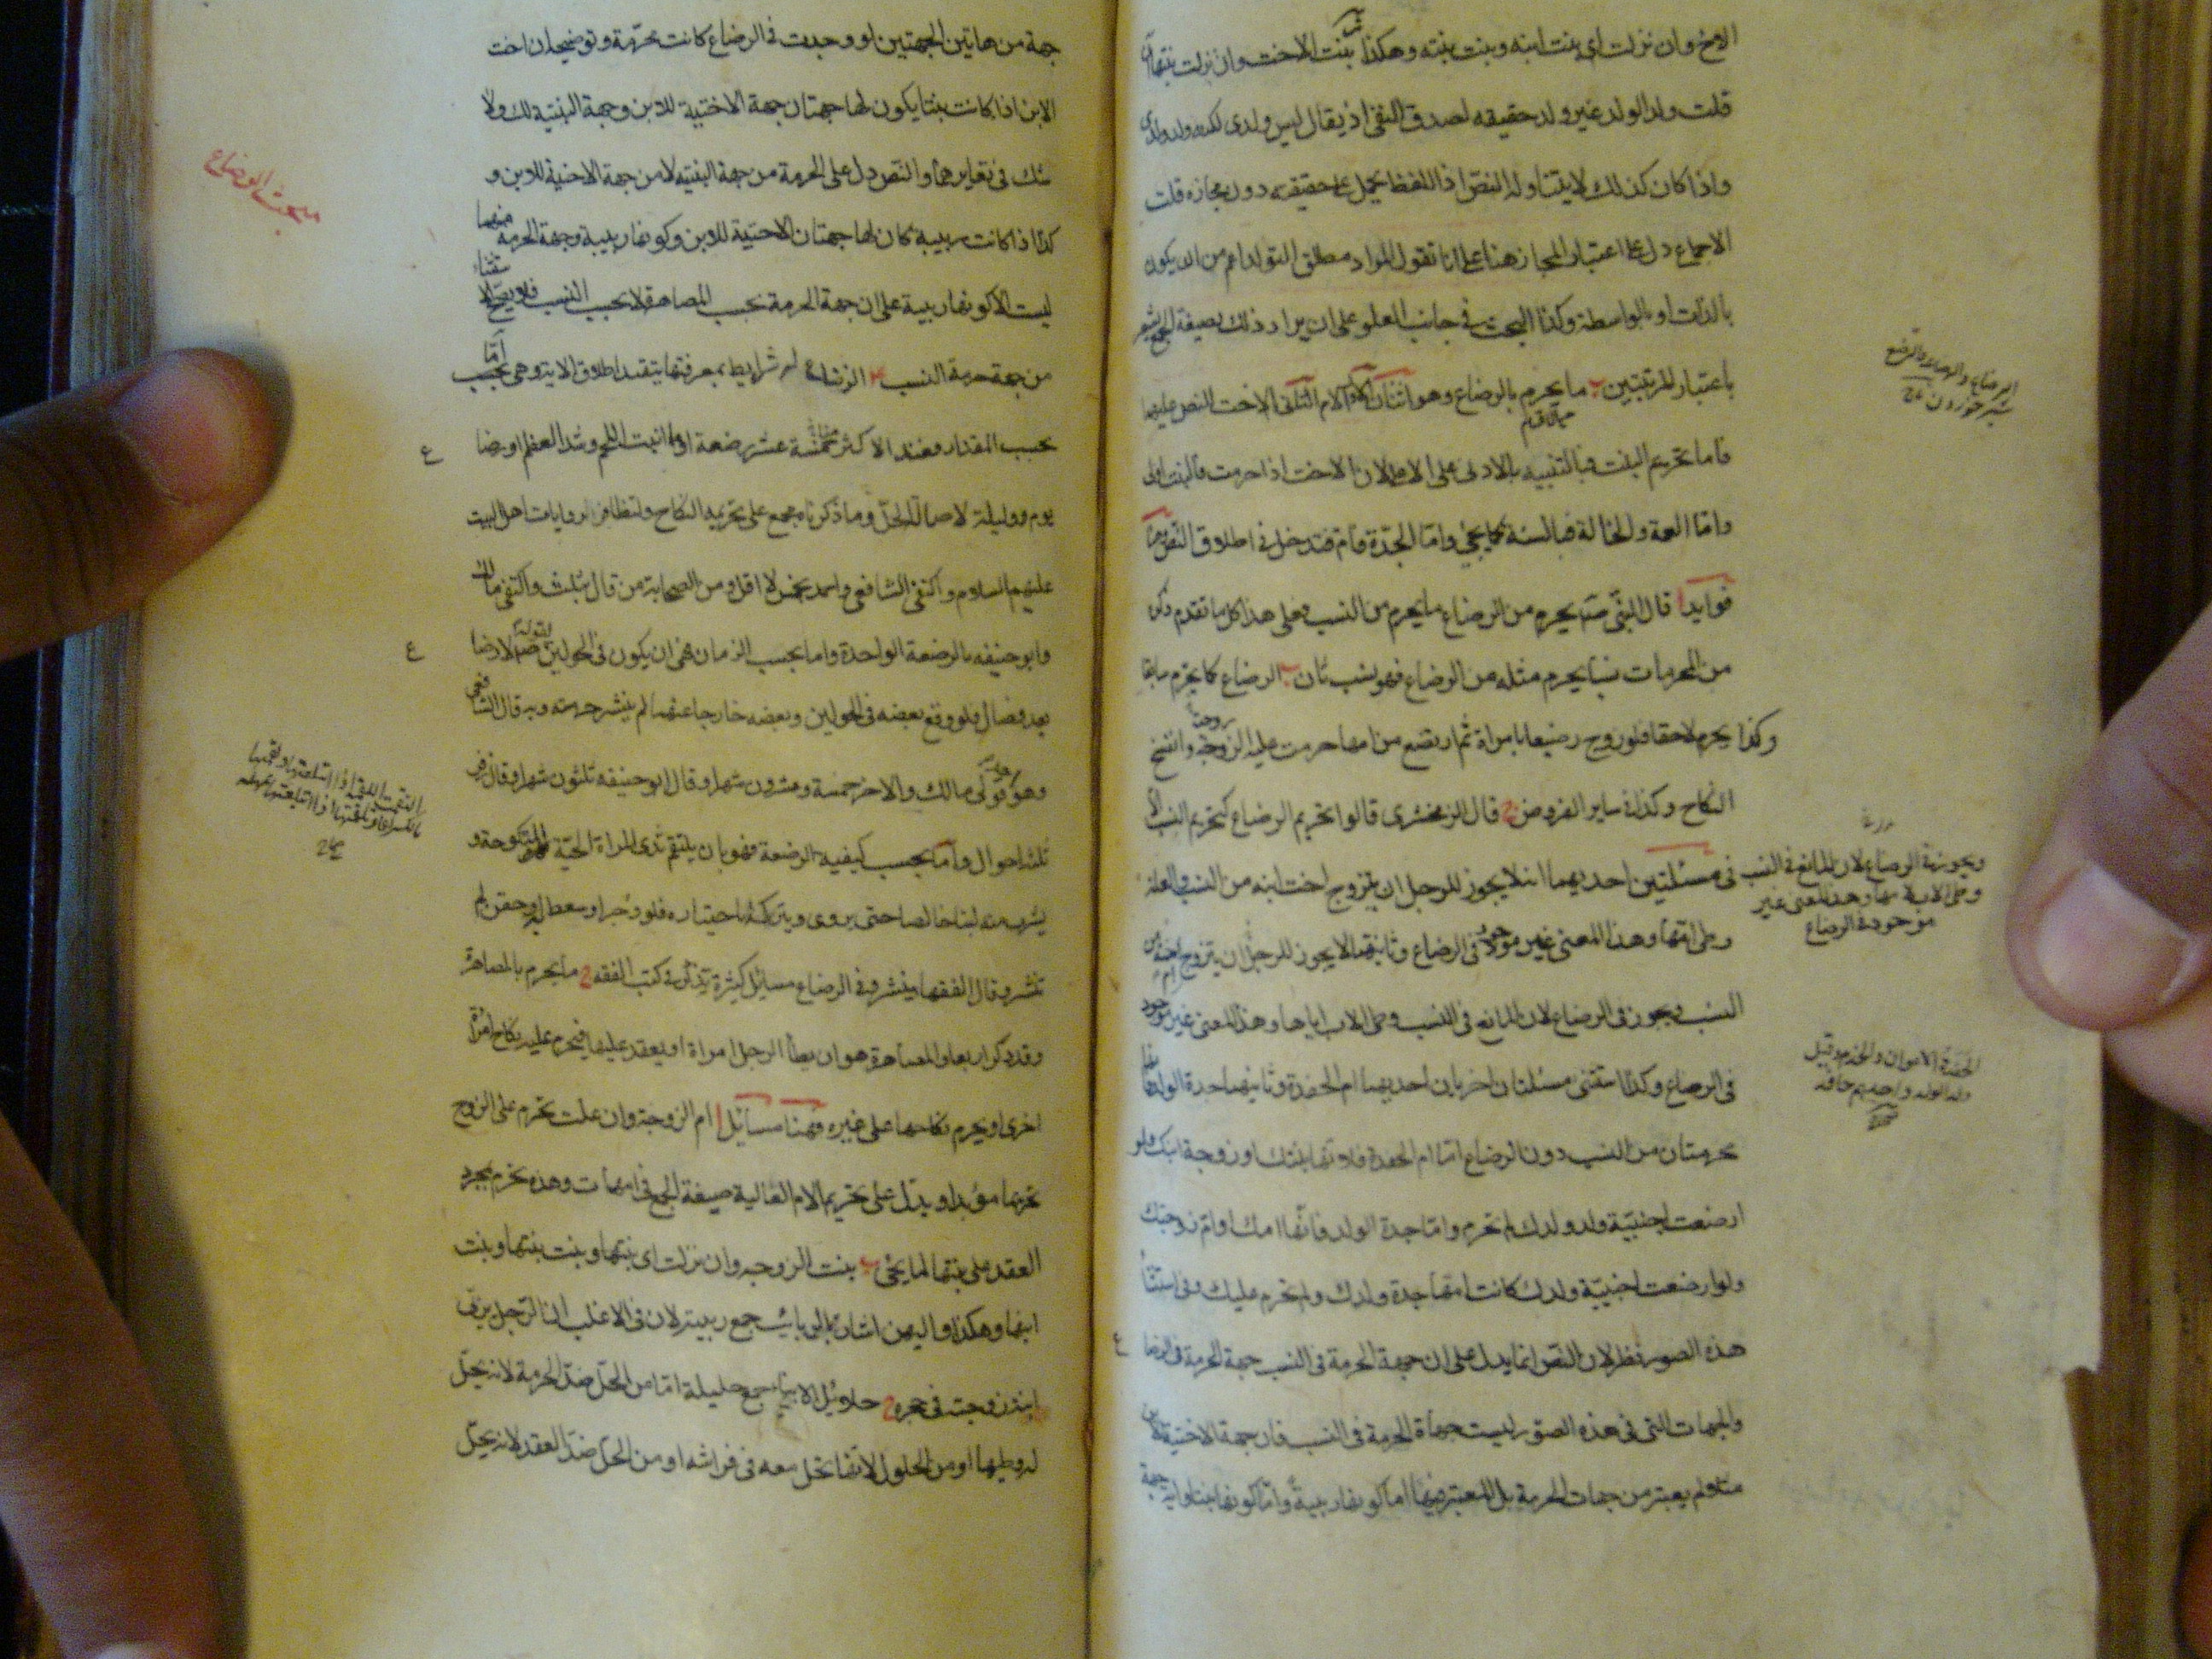 الاخ وان نزلت اى بنت ابنه وبنت بنته وهكذا بنت الاخت وان نزلت بنتها
قلت ولد الولد غير ولد حقيقه لصدق النفى اذ يقال ليس ولدى لكنه ولد ولدى
واذا كان كذلك لا يتناوله النص اذ اللفظ يحمل على حقيقه دون مجازه قلت
الاجماع دل على اعتبار المجاز هنا على انا نقول المراد مطلق التولد اعم من ان يكون
بالذات او بالواسطة وكذا البحث فى جانب العلو على ان يراد ذلك بصيغة الجمع
باعتبار المرتبتين ب ما يحرم بالرضاع وهو اثنان الام الاخت للنص عليهما
فاما تحريم البنت فبالتنبيه بالادنى على الاعلى لان الاخت اذا حرمت فالبنت اولى
واما العمة والخالة فبالسنة كما يجئ واما الجدة فام فتدخل فى اطلاق النص
فوايد ا قال النبى يحرم من الرضاع ما يحرم من النسب فعلى هذا كل ما تقدم ذكره
من المحرمات نسبا يحرم مثله من الرضاع فهو نسب ثان ب الرضاع كما يحرم سابقا
وكذا يحرم لاحقا فلو زوج رضيعا بامراة ثم ارتضع من امها حرمت عليه الزوجة وانفسخ
النكاح وكذا فى ساير الفروض ج قال الزمخشرى قالوا تحريم الرضاع كتحريم النسب الا
فى مسئلتين احديهما انه لا يجوز للرجل ان يتزوج اخت ابنه من النسب والعلة
وطى امها وهذا المعنى غير موجود فى الرضاع وثانيهما لا يجوز للرجل ان يتزوج
النسب ويجوز فى الرضاع لان المانع فى النسب وطى الاب اياها وهذا المعنى غير موجود
فى الرضاع وكذا استثنى مسئلتان اخريان احديهما ام الحفدة وثانيهما جدة الولد
محرمتان من النسب دون الرضاع اما ام الحفدة فلانها بنتك او زوجة ابنك فلو
ارضعت اجنبية ولد ولدك لم تحرم واما جدة الولد فانها امك او ام زوجتك
ولو ارضعت اجنبية ولدك كانت امها جدة ولدك ولم تحرم عليك وفى استثنا
هذه الصور نظر لان النص انما يدل على ان جهة الحرمة فى النسب جهة الحرمة فى الرضا
والجهات التى فى هذه الصور ليست جهات الحرمة فى النسب فان جهة الاختية للابن
مثلا لم يعتبر من جهات الحرمة بل المعتبر فيها اما كونها ربيبة واما كونها بنتا واية جهة
ويجوز فى الرضاع لان المانع فى النسب
وطى الاب لامها وهذا المعنى غير
موجود فى الرضاع
الحفدة الاعوان والخدم وقيل
ولد الولد واحدهم حافد
جهة من هاتين الجهتين لو وجدت فى الرضاع كانت محرمة وتوضيحه ان اخت
الابن اذا كانت بنتا يكون لها جهتان جهة الاختية للابن وجهة البنتية لك ولا
شك فى تغايرهما والنص دل على الحرمة من جهة البنتيه لا من جهة الاختية للابن و
كذا اذا كانت ربيبة كان لها جهتان الاختية للابن وكونها ربيبة وجهة الحرمة منهما
ليست الا كونها ربيبة على ان جهة الحرمة بحسب المصاهرة لا بحسب النسب فلا يصح الاستثناء
من جهة حرمة النسب الرضاع له شرايط بمعرفتها يتقيد اطلاق الاية وهى اما بحسب
بحسب المقدار فعند الاكثر خمسة عشر رضعة او ما انبت اللحم وشد العظم او رضاع
يوم وليلة لاصالة الحل وما ذكرناه مجمع على تحريمه النكاح ولتظافر الروايات اهل البيت
عليهم السلام واكتفى الشافعى واحمد بخمس لا اقل ومن الصحابة من قال بثلث واكتفى مالك
وابو حنيفه بالرضعة الواحدة واما بحسب الزمان فهى ان يكون فى الحولين لقوله لا رضاع
بعد فصال فلو وقع بعضه فى الحولين وبعضه خارجا عنهما لم ينشر حرمته وبه قال الشافعى
وهو قول مالك والاخر خمسة وعشرون شهرا وقال ابو حنيفه ثلثون شهرا وقال زفر
ثلثه احوال واما بحسب كيفية الرضعة فهو بان يلتقم ثدى المراة الحية المنكوحة و
يشرب منه لبنا خالصا حتى يروى ويتركه باختياره فلو وجر او سعط او حقن لم
تنشر وقال الفقها ينشر وفى الرضاع مسائل كثيرة تذكر فى كتب الفقه ج ما يحرم بالمصاهرة
وقد ذكر اربعا والمصاهرة هو ان يطأ الرجل امراة او يعقد عليها فيحرم عليه نكاح امراة
اخرى او يحرم نكاحها على غيره فهنا مسائل ا ام الزوجة وان علت تحرم على الزوج
تحريما مؤبدا ويدل على تحريم الام العالية صيغة الجمع فى امهات وهذه تحرم بمجرد
العقد على بنتها لما يجئ ب بنت الزوجه وان نزلت اى بنتها وبنت بنتها وبنت
ابنها وهكذا واليهن اشار بالربائب جمع ربيبة لان فى الاغلب ان الرجل يربى
ابنة زوجته فى حجره ج حلائل الابناء جمع حليلة اما من الحل ضد الحرمة لانه يحل
له وطيها او من الحلول لانها تحل معه فى فراشه او من الحل ضد العقد لانه يحل
مبحث الرضاع